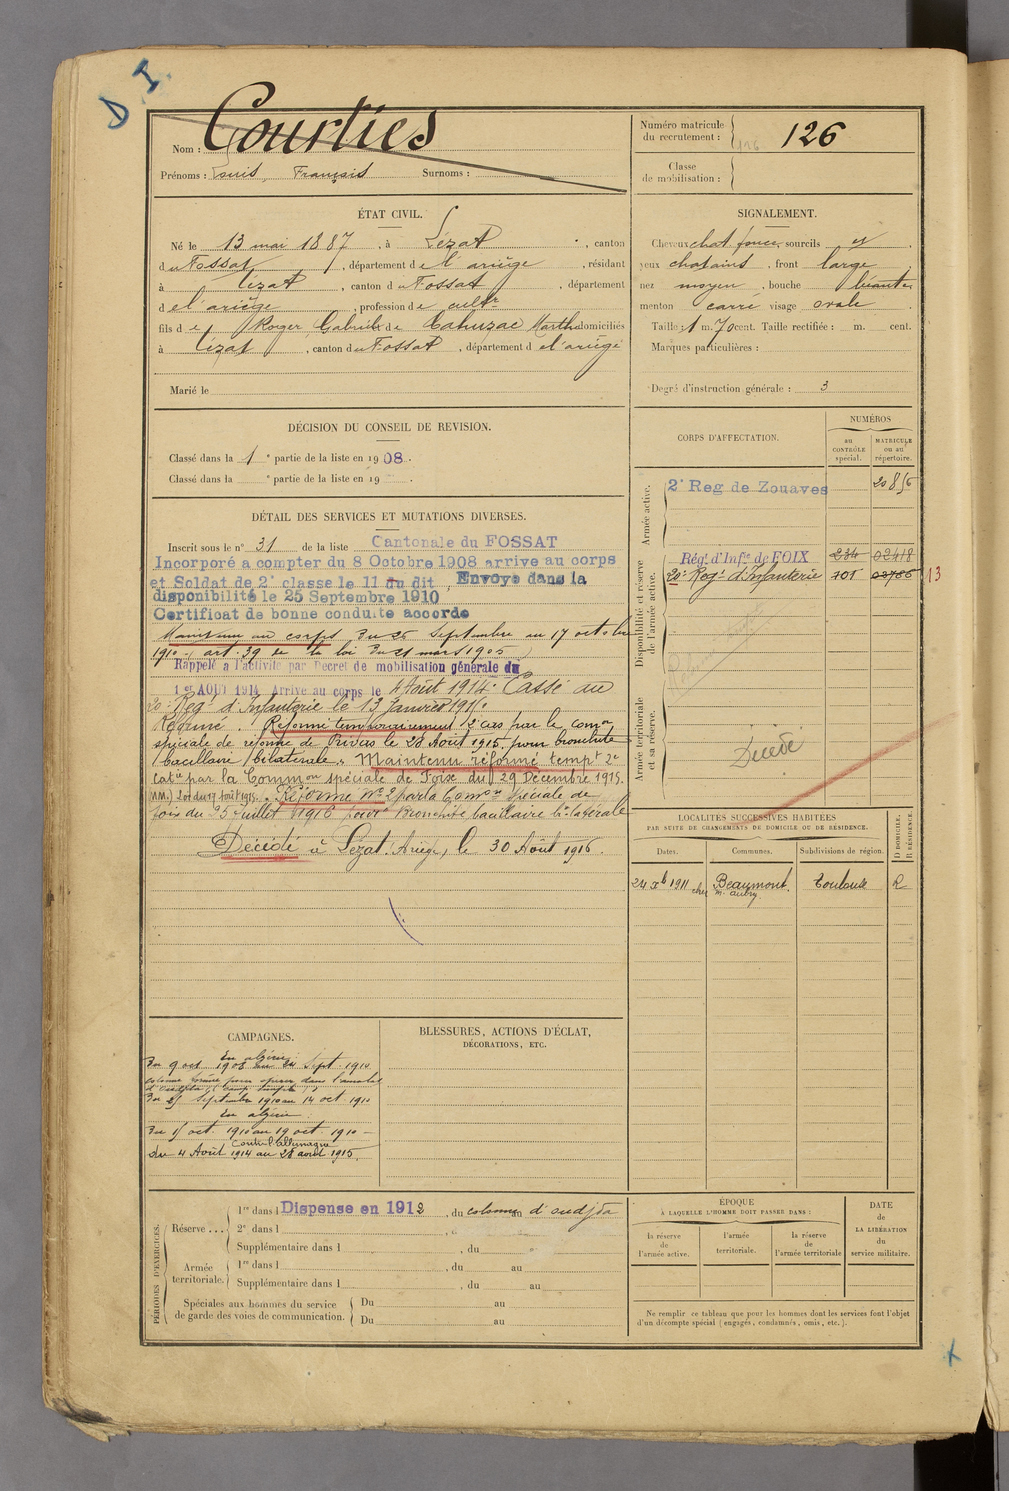 D I
Nom : Courties
Prénoms : Louis, François Surnoms :
Numéro matricule du recrutement : 126
Classe de mobilisation :
ÉTAT CIVIL.
Né le 13 mai 1887, à Lézat, canton
du Fossat, département de l'ariège, résidant
à Lézat, canton du Fossat, département
de l'ariège, profession de cultr
fils de Roger Gabriel et de Cahuzac Martha domiciliés
à Lézat, canton du Fossat, département de l'ariège
Marié le
SIGNALEMENT.
Cheveux chat. foncé, sourcils et
yeux chatains, front large
nez moyen, bouche béante
menton carré visage ovale
Taille : 1 m. 70 cent. Taille rectifiée : m. cent.
Marques particulières :
Degré d'instruction générale : 3
DÉCISION DU CONSEIL DE REVISION.
Classé dans la 1e partie de la liste en 1908.
Classé dans la e partie de la liste en 19 .
DÉTAIL DES SERVICES ET MUTATIONS DIVERSES.
Inscrit sous le n° 31 de la liste Cantonale du FOSSAT
Incorporé a compter du 8 Octobre 1908 arrive au corps
et Soldat de 2e classe le 11 du dit, Envoyé dans la
disponibilité le 25 Septembre 1910
Certificat de bonne conduite accorde
Maintenu au corps du 25 Septembre au 17 octobre
1910, art. 39 de la loi du 21 mars 1905
Rappelé à l'activité par Decret de mobilisation générale du
1er AOUT 1914 Arrivé au corps le 4 Août 1914. Passé au
20e Regt d'Infanterie le 13 Janvier 1915.
Réformé. Reformé temporairement 2e cas par la comon
spéciale de réforme de Privas le 28 Août 1915, pour bronchite
bacillaire bilatérale. Maintenu réformé tempt 2e
catie par la Common spéciale de Foix du 29 Décembre 1915.
Réformé n° 2 par la Comon spéciale de
foix du 25 juillet 1916 pour Bronchite bacillaire bi-latérale
Décédé à Lézat (Ariège), le 30 Août 1916.
CORPS D'AFFECTATION.
NUMÉROS
au CONTRÔLE spécial.
MATRICULE ou au répertoire.
Armée active.
2e Reg de Zouaves 20856
Disponibilité et réserve de l'armée active.
Régt d'Infie de FOIX 234 02418
20e Regt d'Infanterie 701 13
Armée territoriale et sa réserve.
Décédé
LOCALITÉS SUCCESSIVES HABITÉES
PAR SUITE DE CHANGEMENTS DE DOMICILE OU DE RÉSIDENCE.
Dates. Communes. Subdivisions de région. D DOMICILE. R RÉSIDENCE.
24 Xb 1911 Beaumont. Toulouse R
CAMPAGNES.
En algérie
Du 9 oct 1908 au 24 Sept. 1910
Du 25 Septembre 1910 au 14 oct 1910
En algérie
Du 15 oct. 1910 au 19 oct. 1910
Contre l'allemagne
du 4 Août 1914 au 28 août 1915.
BLESSURES, ACTIONS D'ÉCLAT,
DÉCORATIONS, ETC.
PÉRIODES D'EXERCICES.
Réserve ... 1re dans l Dispense en 1912, du colonne au d'oudjda
2e dans l
Supplémentaire dans l , du au
Armée territoriale. 1re dans l , du au
Supplémentaire dans l , du au
Spéciales aux hommes du service de garde des voies de communication. Du au
Du au
ÉPOQUE
A LAQUELLE L'HOMME DOIT PASSER DANS :
la réserve de l'armée active.
l'armée territoriale.
la réserve de l'armée territoriale
DATE de LA LIBÉRATION du service militaire.
Ne remplir ce tableau que pour les hommes dont les services font l'objet
d'un décompte spécial (engagés, condamnés, omis, etc.).